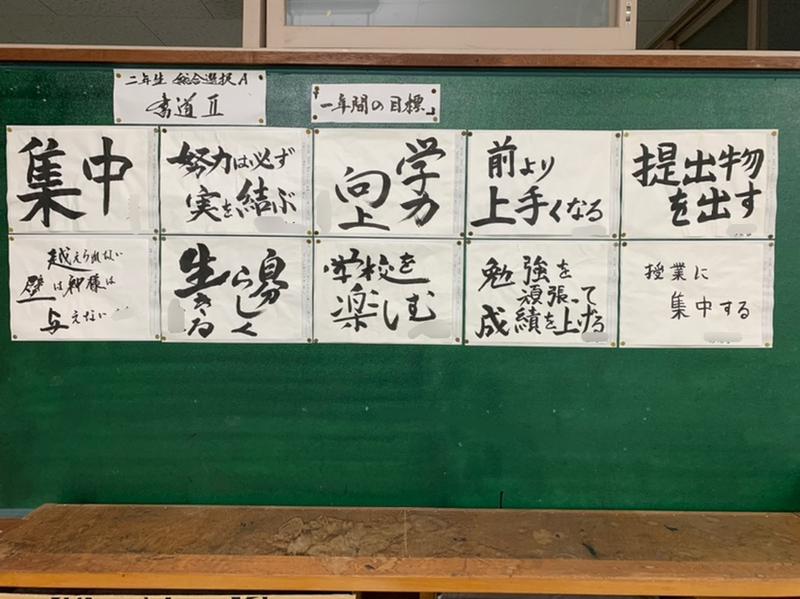 二年生 総合選択A
書道Ⅱ
「一年間の目標」
集中
努力は必ず
実を結ぶ
学力
向上
前より
上手くなる
提出物
を出す
越えられない
壁は神様は
与えない
らしく
生きる
学校を
楽しむ
勉強を
頑張って
成績を上げる
授業に
集中する